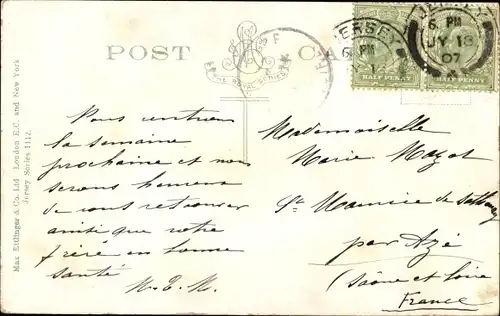 POST C
THE ROYAL SERIES
JERSEY
6 PM
JY 18
07
HALF PENNY
HALF PENNY
Max Ettlinger & Co. Ltd. London E.C. and New York
Jersey Series 1112.
Vous rentrons
la semaine
prochaine et nous
serons heureux
de vous retrouver
ainsi que votre
frère en bonne
santé
Mademoiselle
Marie Mazet
St Maurice de
par Azé
(Saône et Loire
France